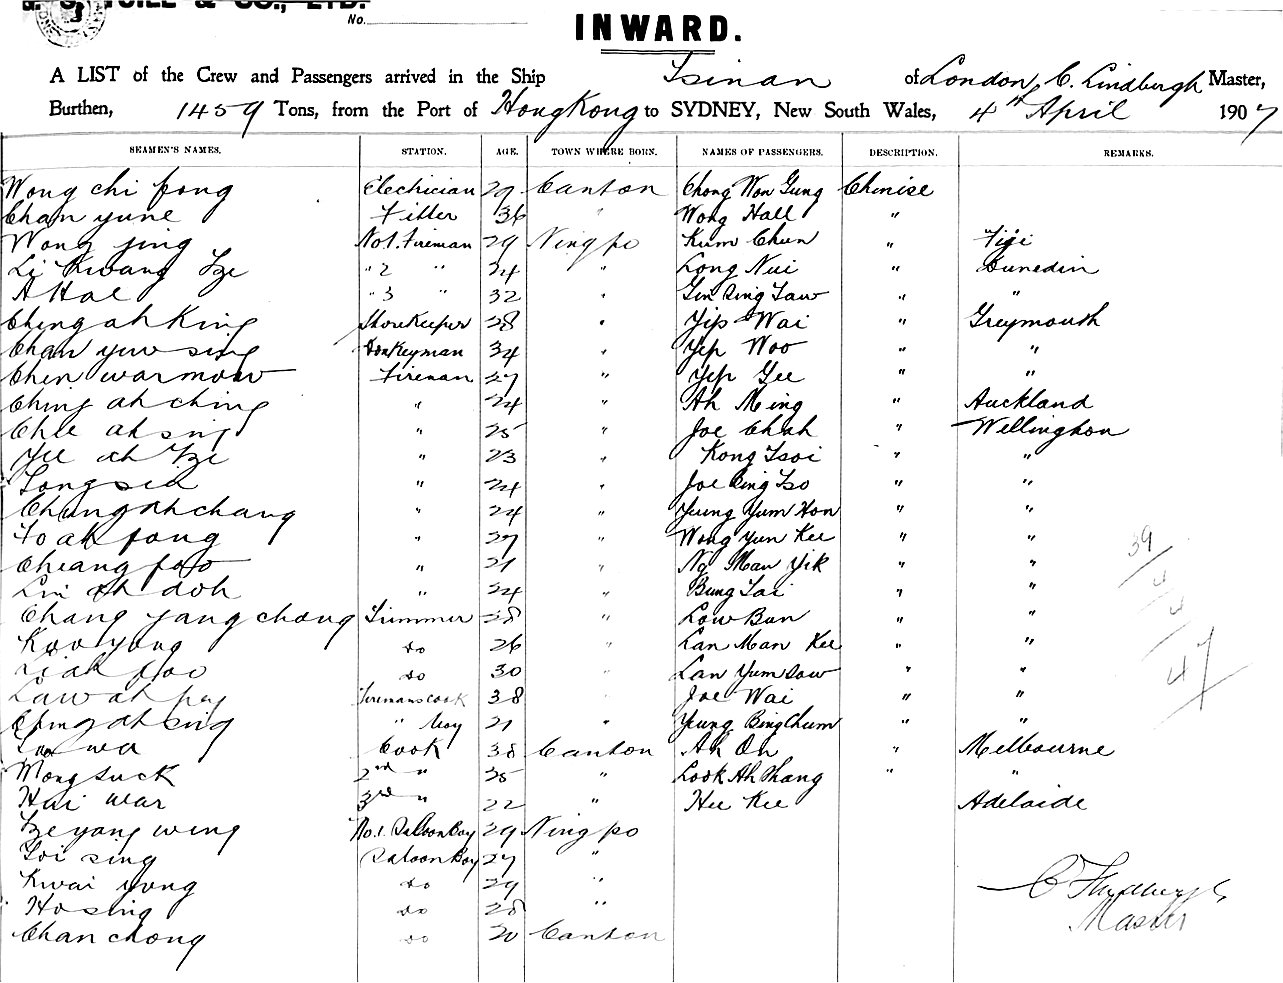 & CO., LTD.
No.
INWARD.
A LIST of the Crew and Passengers arrived in the Ship Tsinan of London, C. Lindbergh Master,
Burthen, 1459 Tons, from the Port of HongKong to SYDNEY, New South Wales, 4th April 1907
SEAMEN'S NAMES. STATION. AGE. TOWN WHERE BORN. NAMES OF PASSENGERS. DESCRIPTION. REMARKS.
Wong chi fong Electrician 29 Canton Chong Won Gung Chinise
Chan yune Fitter 36 " Wong Hall "
Wong jing No1. Fireman 29 Ningpo Kum Chun " Fiji
Li Kwang Tze "2 " 24 " Long Nui " Dunedin
A Hal "3 " 32 " Gin Sing Law " "
Ching ah King StoreKeeper 28 " Yip Wai " Greymouth
Chan yuw sing DonKeyman 34 " Yep Woo " "
Chin warmow Fireman 27 " Yep Gee " "
Ching ah ching " 24 " Ah Ming " Auckland
Chee ah sing " 25 " Joe Chah " Wellington
Yee ah Tze " 23 " Kong Tsoi " "
Tongsin " 24 " Joe Sing Tso " "
Chung ah chang " 24 " Yung Yum Hon " "
Fo ah fong " 27 " Wong Yun Kee " "
39
Cheang foo " 21 " Ng Man Yik " "
4
Lin ah doh " 24 " Bung Tai " "
4
Chang yang chong Trimmer 28 " Low Bun " "
Koo yong do 26 " Lan Man Kee " "
47
Li ah foo do 30 " Lan Yum Sow " "
Law ah pey Firemans cook 38 " Joe Wai " "
Ching ah sing " boy 21 " Yeung Bing Chum " "
wa Cook 38 Canton Ah On " Melbourne
Wong suck 2nd " 25 " Look Ah Shang " "
Hui war 3rd " 22 " Hee Kee Adelaide
Tze yang wing No.1. Saloon Boy 29 Ningpo
Loi sing Saloon Boy 27 "
Kwai yong do 29 "
C Lindbergh
Ho sing do 28 "
Master
Chan chong do 20 Canton